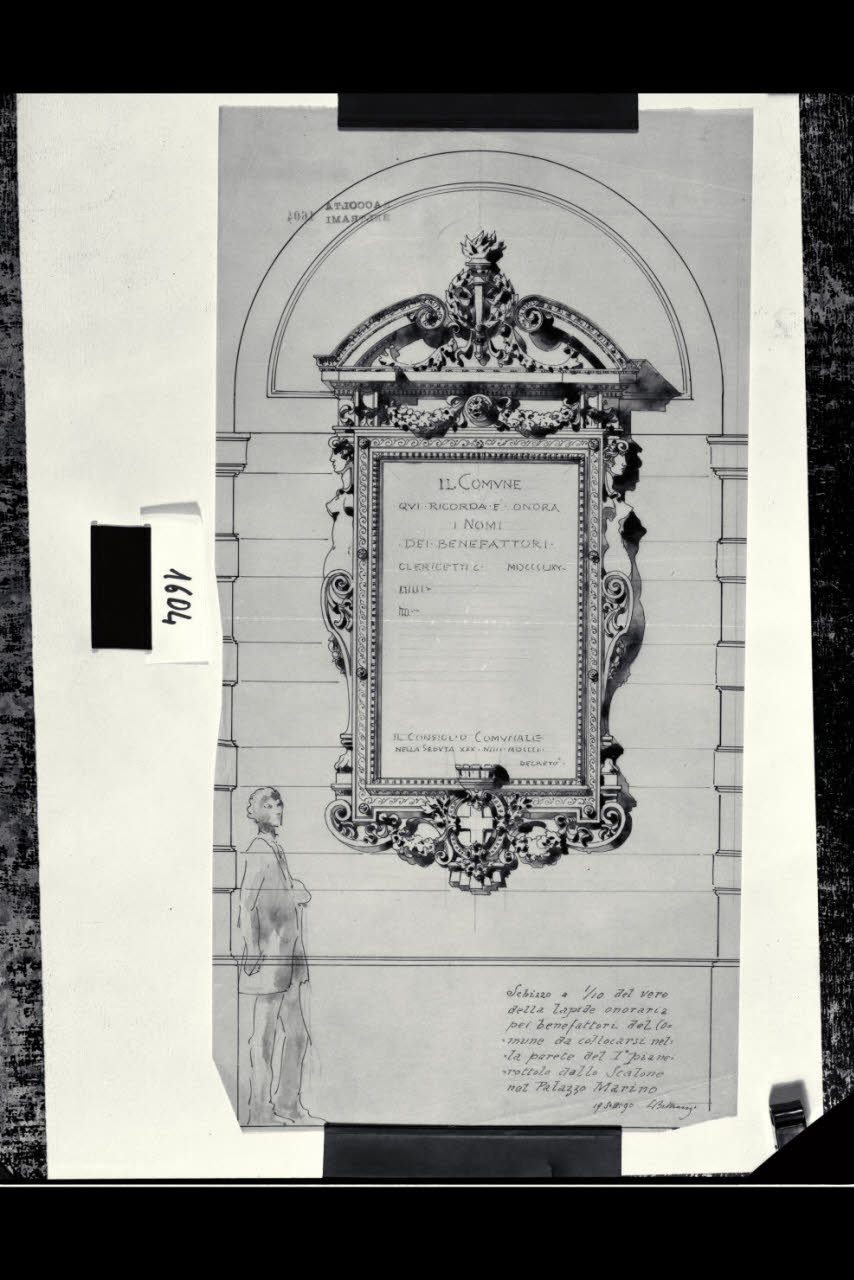 RACCOLTA
BELTRAMI 1604
IL COMVNE
QVI·RICORDA·E·ONORA
I NOMI
·DEI·BENEFATTORI·
CLERICETTI C·
IL CONSIGLIO COMVNALE
NELLA SEDVTA XXX·
DECRETÒ·
1604
Schizzo a 1/10 del vero
della lapide onoraria
pei benefattori del Co-
-mune da collocarsi nel-
-la parete del I° piane-
-rottolo dello Scalone
nel Palazzo Marino